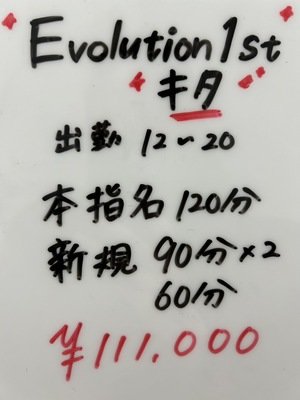 Evolution1st
キタ
出勤 12~20
本指名 120分
新規 90分×2
60分
¥111,000